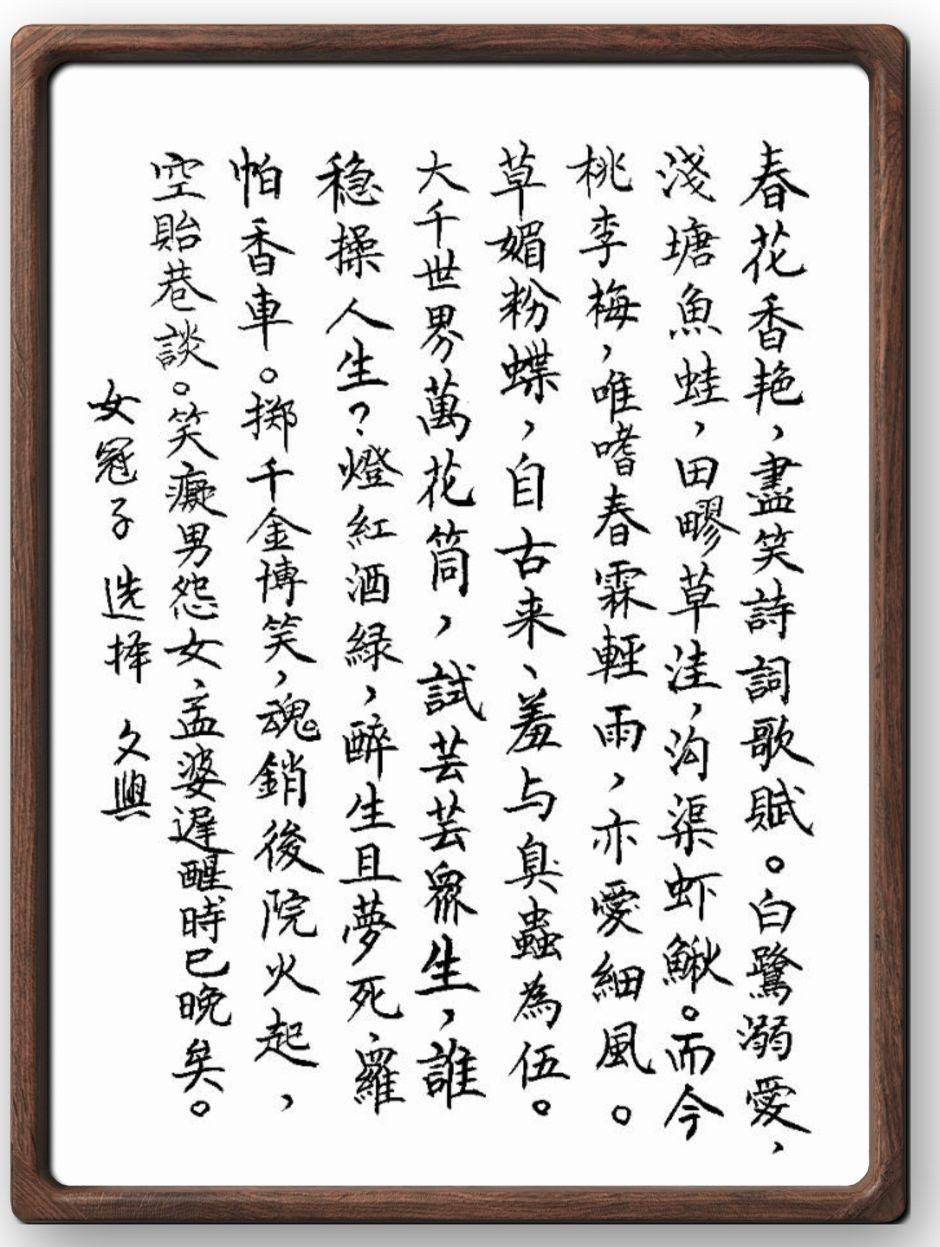 春花香艳，盡笑詩詞歌賦。白鷺溺愛，
淺塘魚蛙，田疁草洼，沟渠虾鳅。而今
桃李梅，唯嗜春霖輕雨，亦愛細風。
草媚粉蝶，自古来、羞与臭蟲為伍。
大千世界萬花筒，試芸芸眾生，誰
穩操人生？燈紅酒緑，醉生且夢死、羅
帕香車。掷千金博笑，魂銷後院火起，
空貽巷談。笑癡男怨女，孟婆遲醒時已晚矣。
女冠子 选择 文興